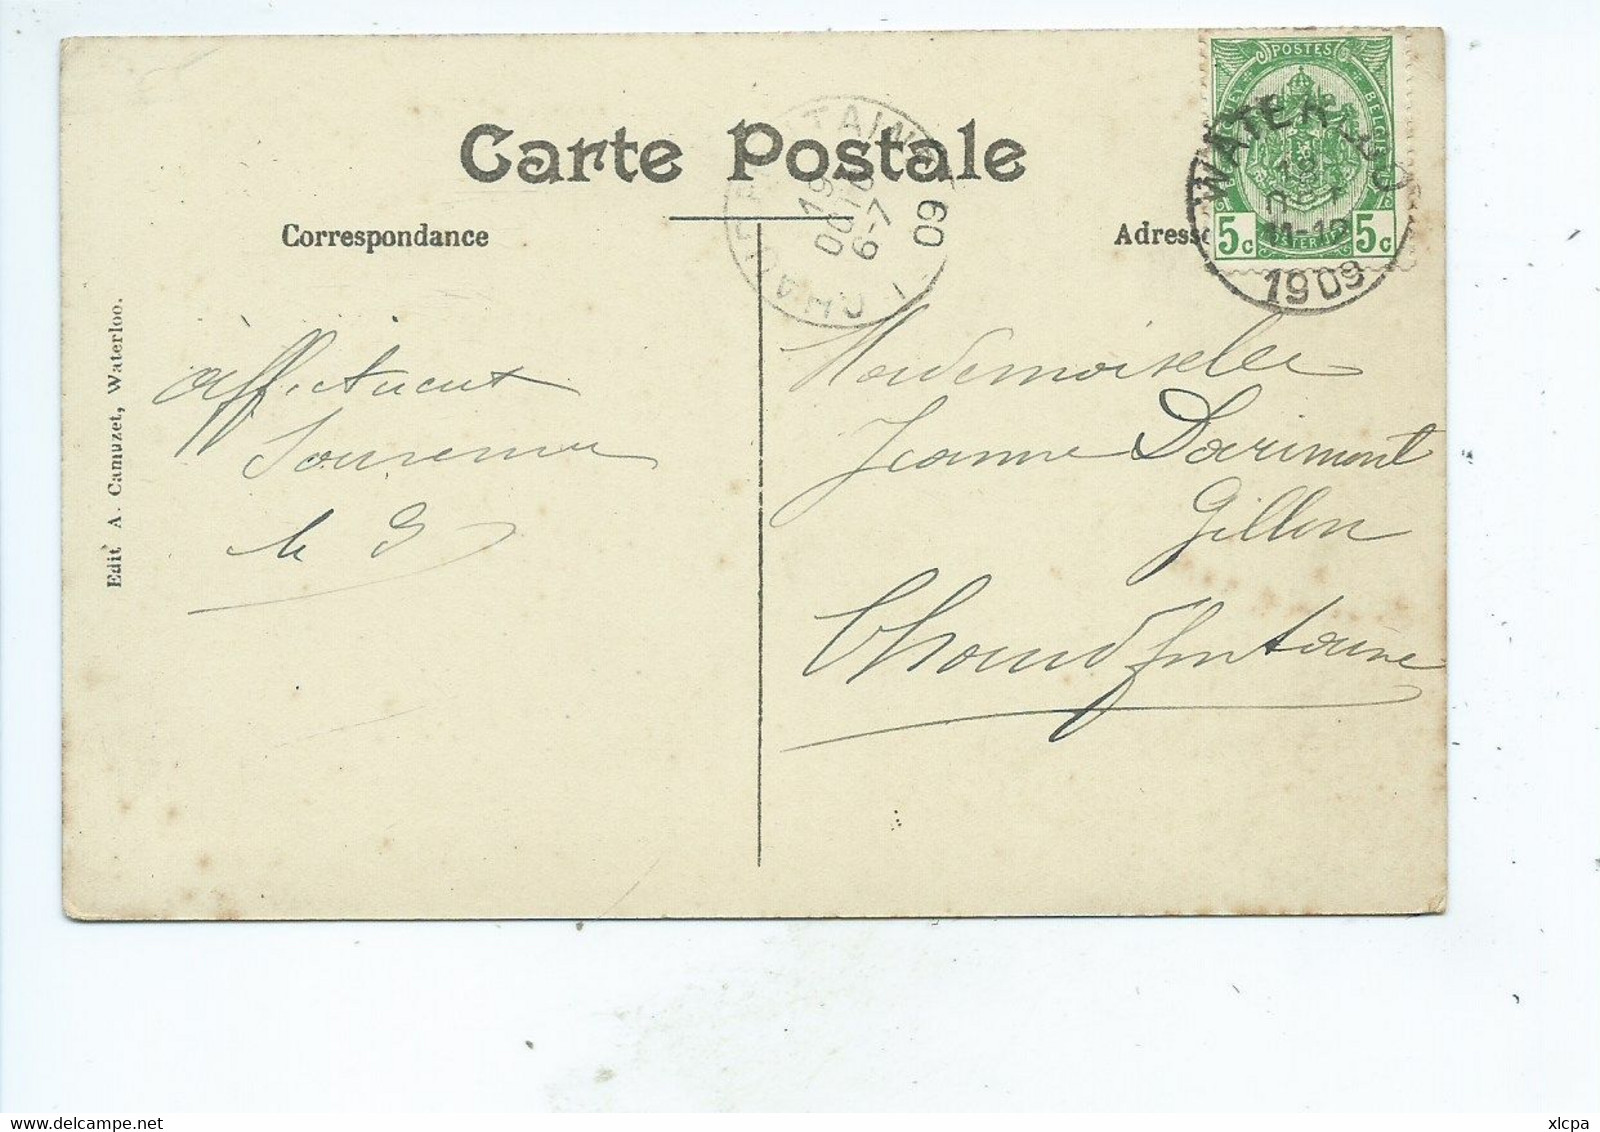 Carte Postale
Correspondance
Adresse
POSTES
BELGIE
5c 5c
WATERLOO
11-12
1909
CHAUDFONTAINE
19
OCTO
6-7
09
Edit A. Camuzet, Waterloo.
Affectueux
Souvenir
Mademoiselle
Jeanne Darimont
Gillon
Chaudfontaine
xlcpa